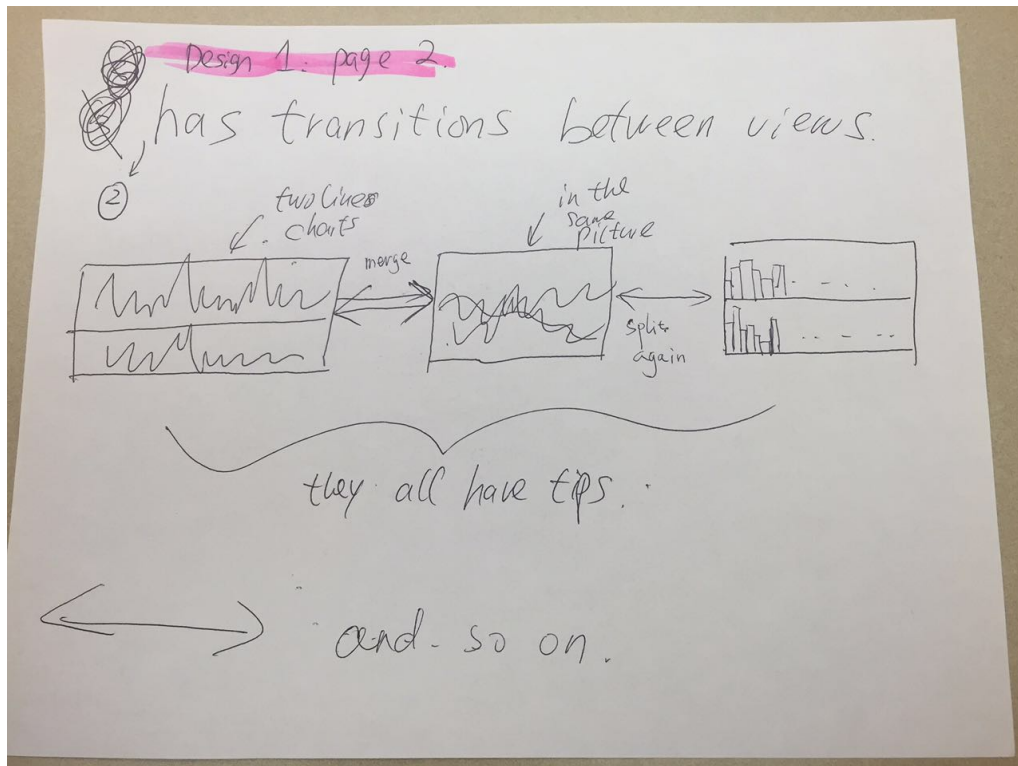 Design 1: page 2.
has transitions between views.
2
two lines
charts
in the
same
picture
merge
split
again
they all have tips.
and so on.